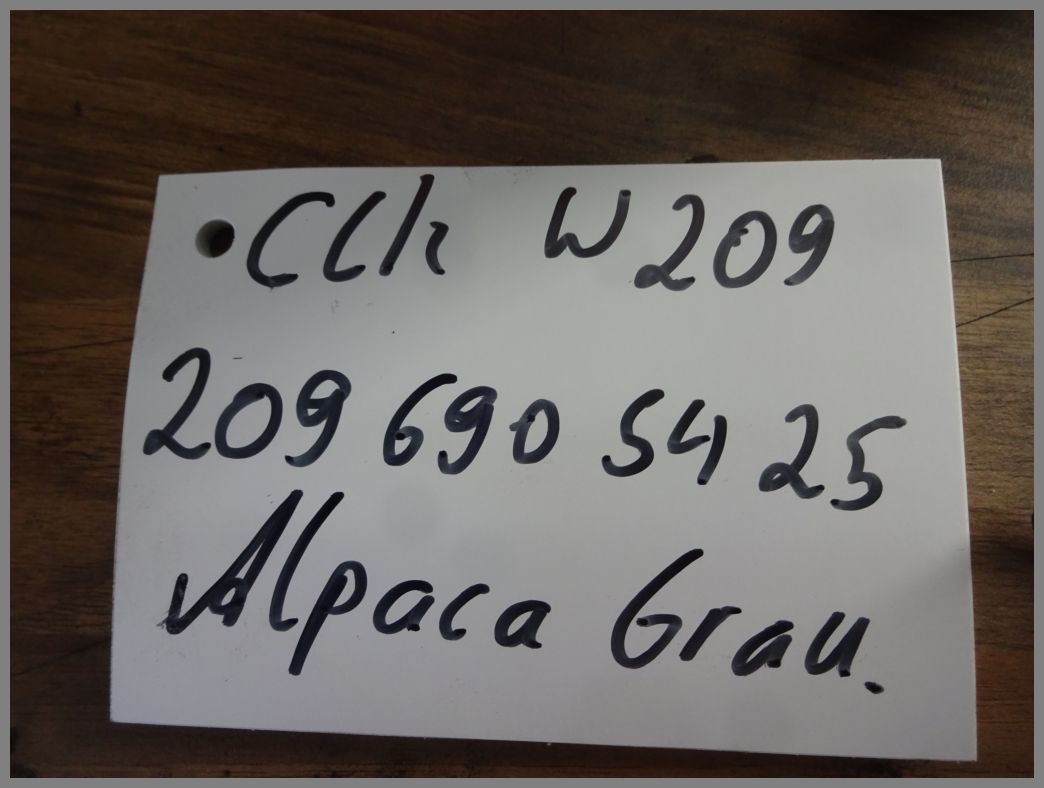 CLk W209
209 690 54 25
Alpaca Grau.